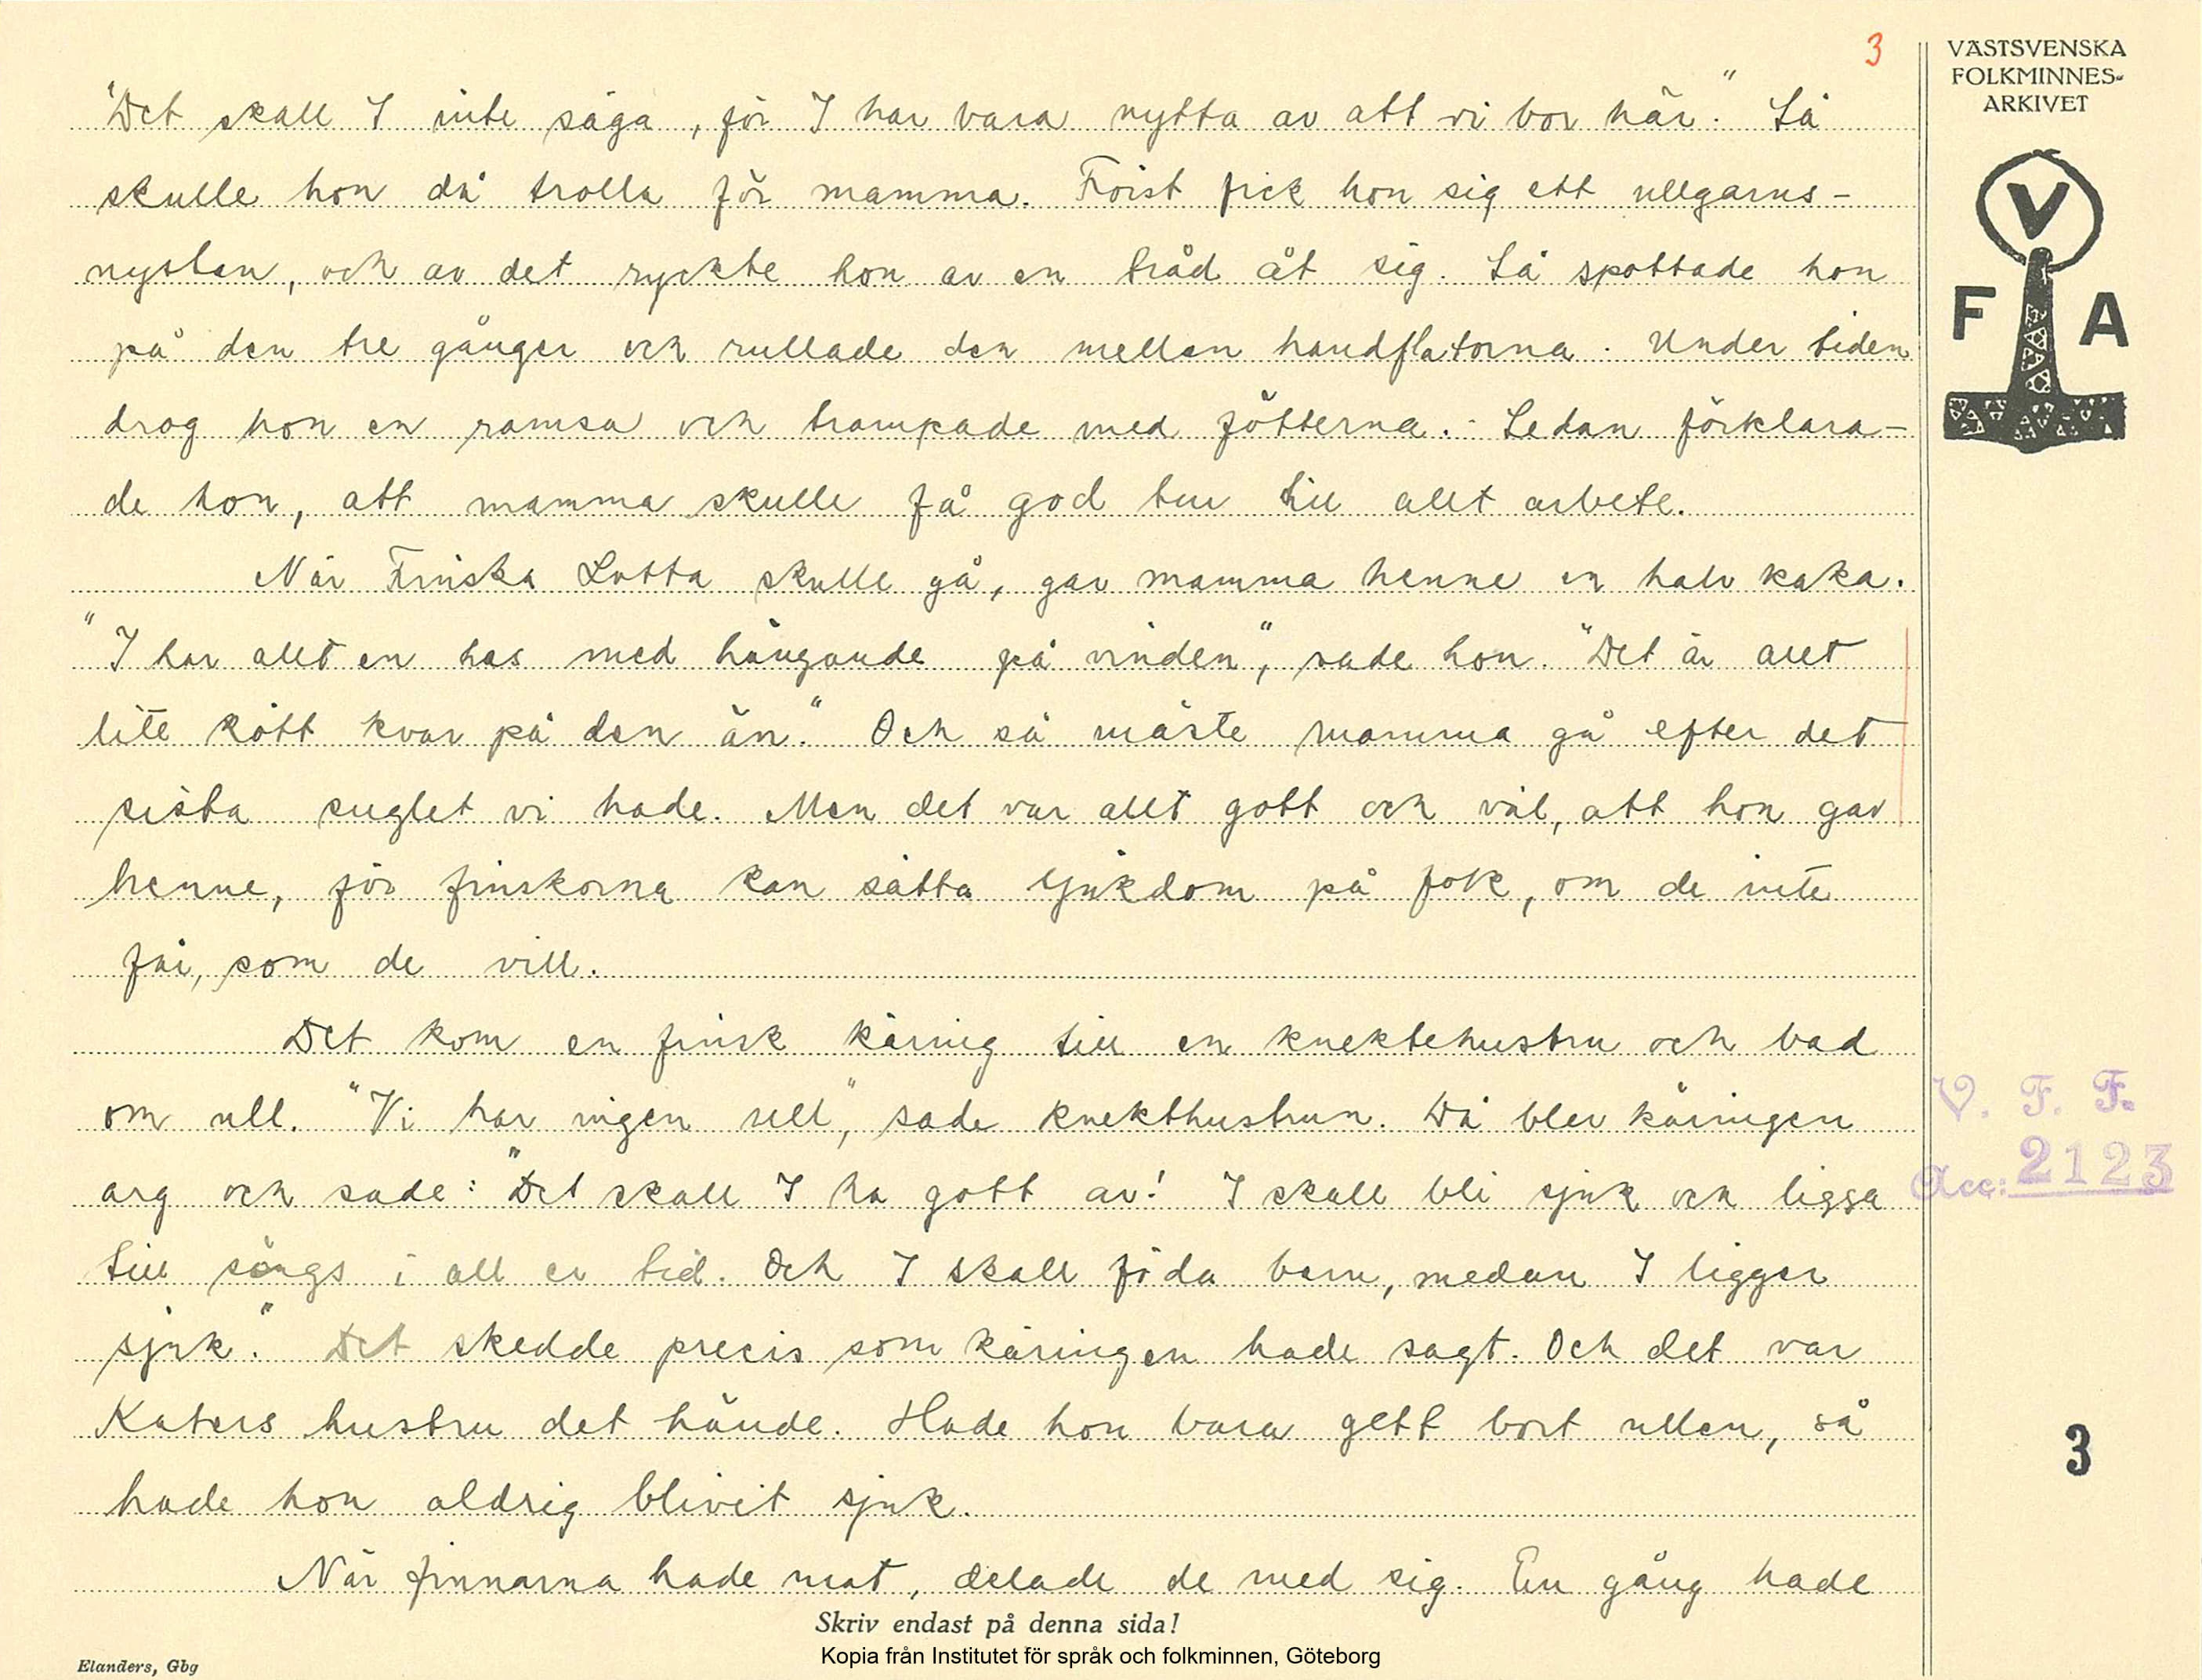 3
"Det skall I inte säga, för I har bara nytta av att vi bor här." Så
skulle hon då trolla för mamma. Först fick hon sig ett ullgarns-
nystan, och av det ryckte hon av en tråd åt sig. Så spottade hon
på den tre gånger och rullade den mellan handflatorna. Under tiden
drog hon en ramsa och trampade med fötterna. Sedan förklara-
de hon, att mamma skulle få god tur till allt arbete.
När Finska Lotta skulle gå, gav mamma henne en halv kaka.
"I har allt en has med hängande på vinden", sade hon. "Det är allt
lite kött kvar på den än." Och så måste mamma gå efter det
sista suglet vi hade. Men det var allt gott och väl, att hon gav
henne, för finskorna kan sätta sjukdom på folk, om de inte
får, som de vill.
Det kom en finsk käring till en knektehustru och bad
om ull. "Vi har ingen ull", sade knekthustrun. Då blev käringen
arg och sade: "Det skall I ha gott av! I skall bli sjuk och ligga
till sängs i all er tid. Och I skall föda barn, medan I ligger
sjuk." Det skedde precis som käringen hade sagt. Och det var
Katers hustru det hände. Hade hon bara gett bort ullen, så
hade hon aldrig blivit sjuk.
När finnarna hade mat, delade de med sig. En gång hade
Skriv endast på denna sida!
Kopia från Institutet för språk och folkminnen, Göteborg
Elanders, Gbg
VÄSTSVENSKA
FOLKMINNES-
ARKIVET
V
F A
V. F. F.
Acc: 2123
3